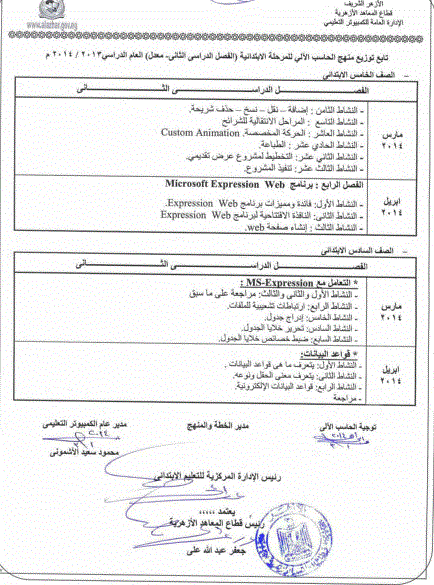 الأزهر الشريف
قطاع المعاهد الأزهرية
الإدارة العامة للكمبيوتر التعليمي
www.alazhar.gov.eg
تابع توزيع منهج الحاسب الآلي للمرحلة الابتدائية (الفصل الدراسى الثانى- معدل) العام الدراسي ٢٠١٣ / ٢٠١٤ م
- الصف الخامس الابتدائى
الفصل الدراسى الثانى
مارس ٢٠١٤
- النشاط الثامن : إضافة – نقل – نسخ – حذف شريحة.
- النشاط التاسع : المراحل الانتقالية للشرائح
- النشاط العاشر : الحركة المخصصة. Custom Animation
- النشاط الحادي عشر : الطباعة.
- النشاط الثاني عشر : التخطيط لمشروع عرض تقديمي.
- النشاط الثالث عشر : تنفيذ المشروع.
ابريل ٢٠١٤
الفصل الرابع : برنامج Microsoft Expression Web
- النشاط الأول: فائدة ومميزات برنامج Expression Web.
- النشاط الثانى: النافذة الافتتاحية لبرنامج Expression Web
- النشاط الثالث : إنشاء صفحة web.
- الصف السادس الابتدائى
الفصل الدراسى الثانى
مارس ٢٠١٤
* التعامل مع MS-Expression :
- النشاط الأول والثانى والثالث: مراجعة على ما سبق
- النشاط الرابع: ارتباطات تشعيبية للملفات.
- النشاط الخامس: إدراج جدول.
- النشاط السادس: تحرير خلايا الجدول.
- النشاط السابع: ضبط خصائص خلايا الجدول.
ابريل ٢٠١٤
* قواعد البيانات:
- النشاط الأول: يتعرف ما هى قواعد البيانات .
- النشاط الثاني: يتعرف معنى الحقل ونوعه.
- النشاط الرابع: قواعد البيانات الإلكترونية.
- مراجعة
توجية الحاسب الألى
مدير الخطة والمنهج
مدير عام الكمبيوتر التعليمى
محمود سعيد الأشمونى
رئيس الإدارة المركزية للتعليم الابتدائى
يعتمد ،،،،،
رئيس قطاع المعاهد الأزهرية
جعفر عبد الله على